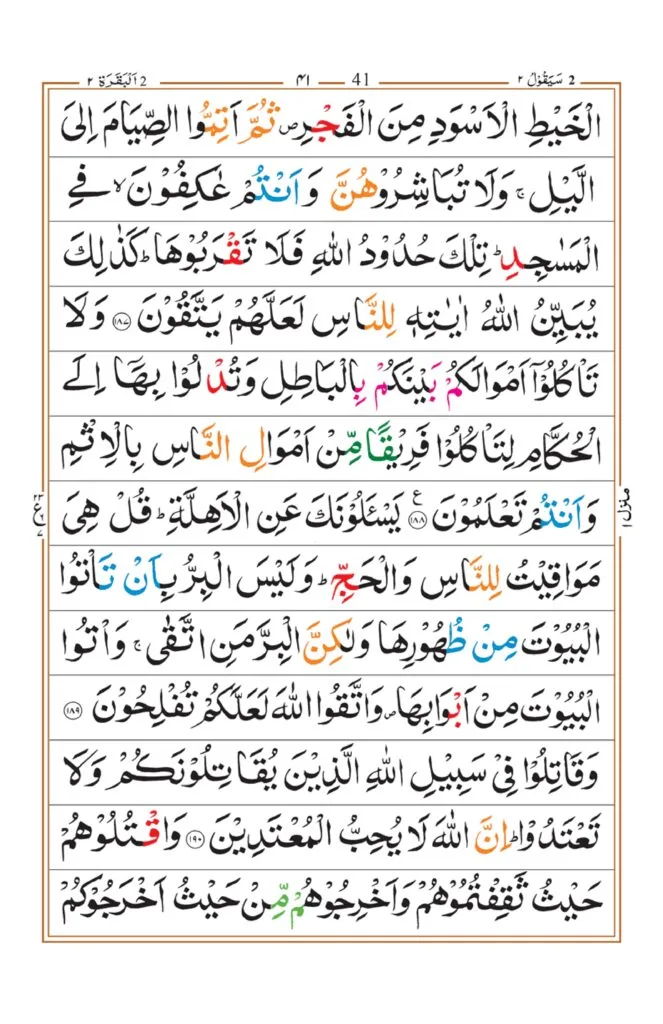 سَيَقُوْلُ ٢ 2 41 ٤١ اَلْبَقَرَة ٢ 2
الْخَيْطِ الْاَسْوَدِ مِنَ الْفَجْرِ ۪ ثُمَّ اَتِمُّوا الصِّيَامَ اِلَى
الَّيْلِ ۚ وَلَا تُبَاشِرُوْهُنَّ وَاَنْتُمْ عٰكِفُوْنَ ۙ فِے
الْمَسٰجِدِ ؕ تِلْكَ حُدُوْدُ اللّٰهِ فَلَا تَقْرَبُوْهَا ؕ كَذٰلِكَ
يُبَيِّنُ اللّٰهُ اٰيٰتِهٖ لِلنَّاسِ لَعَلَّهُمْ يَتَّقُوْنَ ۝١٨٧ وَلَا
تَاْكُلُوْۤا اَمْوَالَكُمْ بَيْنَكُمْ بِالْبَاطِلِ وَتُدْلُوْا بِهَاۤ اِلَے
الْحُكَّامِ لِتَاْكُلُوْا فَرِيْقًا مِّنْ اَمْوَالِ النَّاسِ بِالْاِثْمِ
وَاَنْتُمْ تَعْلَمُوْنَ ۝١٨٨ ع يَسْـَٔلُوْنَكَ عَنِ الْاَهِلَّةِ ؕ قُلْ هِىَ
مَوَاقِيْتُ لِلنَّاسِ وَالْحَجِّ ؕ وَلَيْسَ الْبِرُّ بِاَنْ تَاْتُوا
الْبُيُوْتَ مِنْ ظُهُوْرِهَا وَلٰكِنَّ الْبِرَّ مَنِ اتَّقٰى ۚ وَاْتُوا
الْبُيُوْتَ مِنْ اَبْوَابِهَا ۪ وَاتَّقُوا اللّٰهَ لَعَلَّكُمْ تُفْلِحُوْنَ ۝١٨٩
وَقَاتِلُوْا فِىْ سَبِيْلِ اللّٰهِ الَّذِيْنَ يُقَاتِلُوْنَكُمْ وَلَا
تَعْتَدُوْا ؕ اِنَّ اللّٰهَ لَا يُحِبُّ الْمُعْتَدِيْنَ ۝١٩٠ وَاقْتُلُوْهُمْ
حَيْثُ ثَقِفْتُمُوْهُمْ وَاَخْرِجُوْهُمْ مِّنْ حَيْثُ اَخْرَجُوْكُمْ
منزل ١